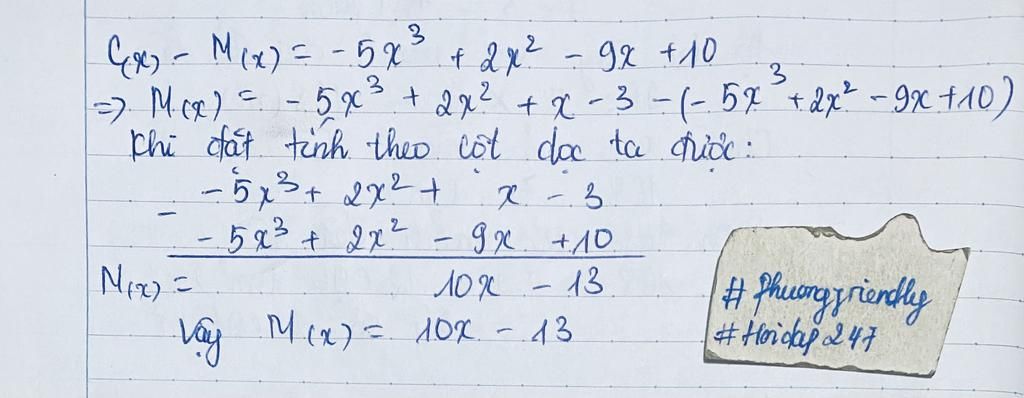 C(x) - M(x) = -5x³ + 2x² - 9x +10
=> M(x) = -5x³ + 2x² + x - 3 - (-5x³ +2x² - 9x +10)
Khi đặt tính theo cột dọc ta được:
-5x³ + 2x² + x - 3
-
-5x³ + 2x² - 9x +10
M(x) = 10x - 13
Vậy M(x) = 10x - 13
# Phuongfriendly
# Hoidap 247